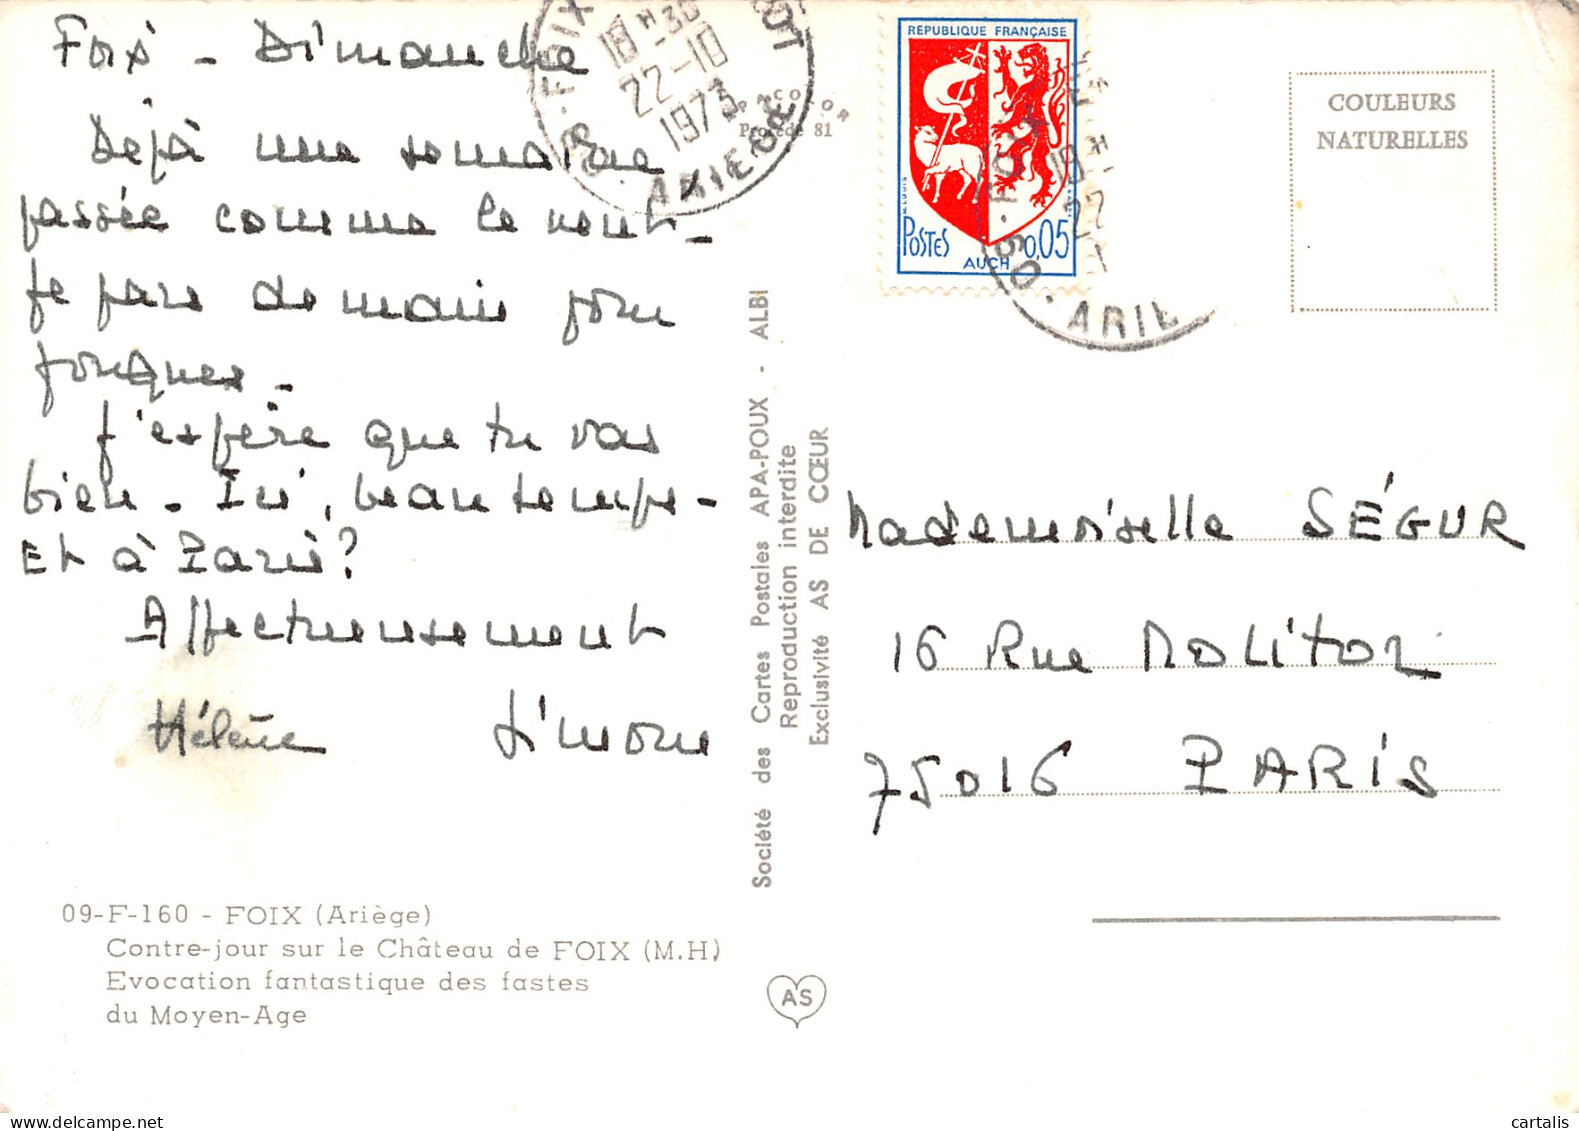 Foix - Dimanche
Déjà une semaine
passée comme le vent -
Je pars demain pour
J'espère que tu vas
bien - Ici, beau temps -
Et à Paris?
Affectueusement
Hélène Simone
09-F-160 - FOIX (Ariège)
Contre-jour sur le Château de FOIX (M.H)
Evocation fantastique des fastes
du Moyen-Age
18H-30
22-10
1973
09 · FOIX
ARIEGE
Procédé 81
Société des Cartes Postales APA-POUX - ALBI
Reproduction interdite
Exclusivité AS DE CŒUR
AS
REPUBLIQUE FRANÇAISE
POSTES 0,05
AUCH
09 · FOIX
18H
22
ARIE
COULEURS
NATURELLES
Mademoiselle SÉGUR
16 Rue MOLITOR
75016 PARIS